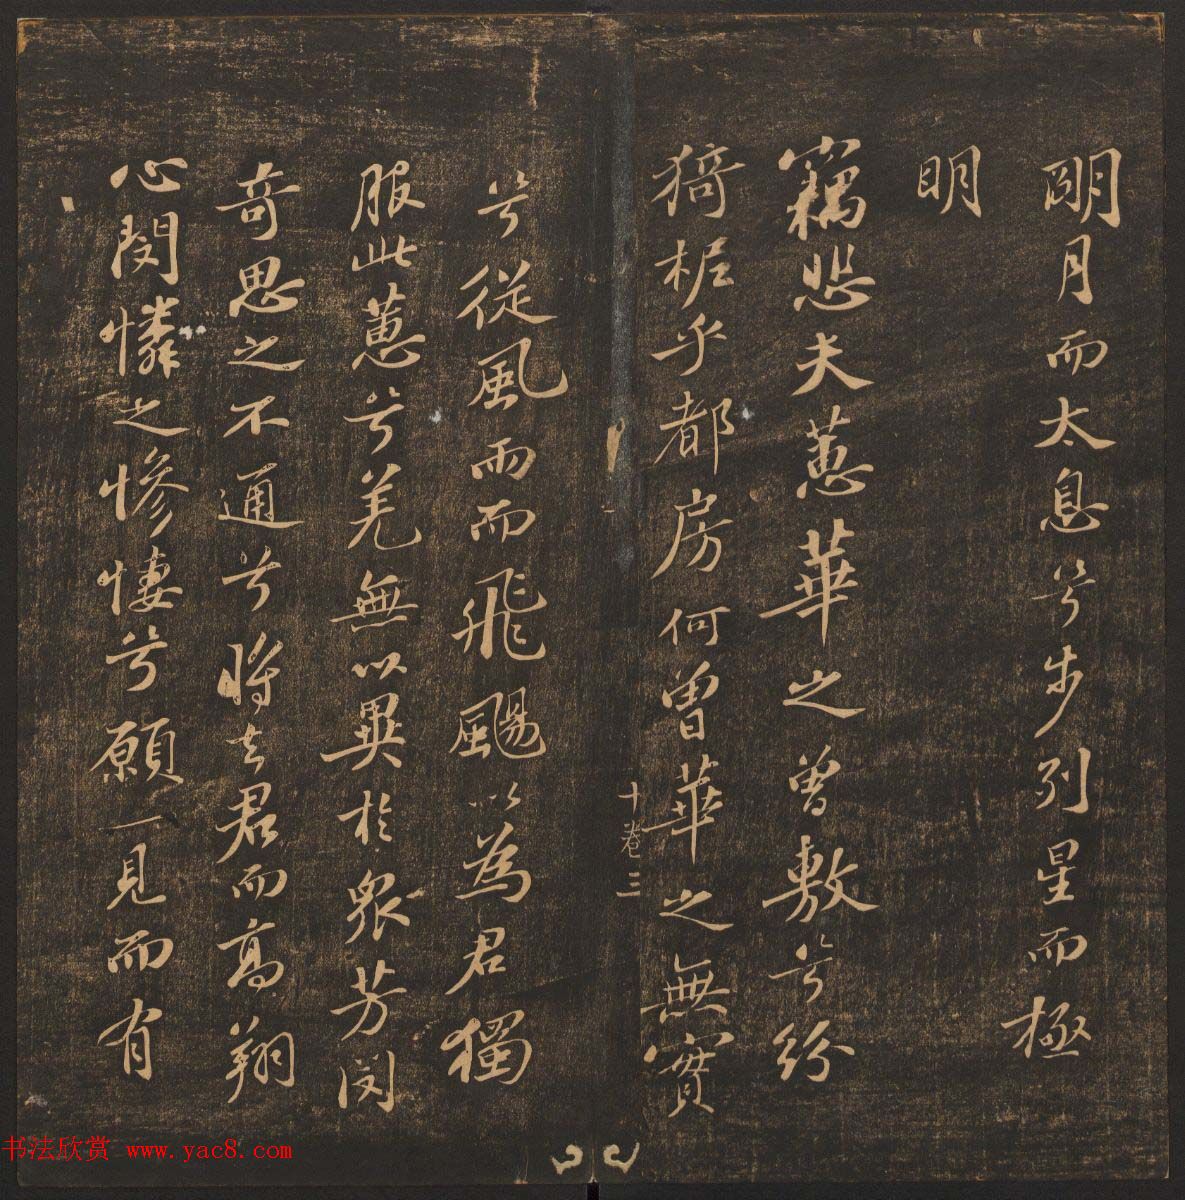 朙月而太息兮步列星而極
明
竊悲夫蕙華之曾敷兮紛
猗柅乎都房何曾華之無實
十卷三
兮從風雨而飛颺以為君獨
服此蕙兮羌無以異於眾芳閔
奇思之不通兮將去君而高翔
心閔憐之慘悽兮願一見而有
书法欣赏 www.yac8.com